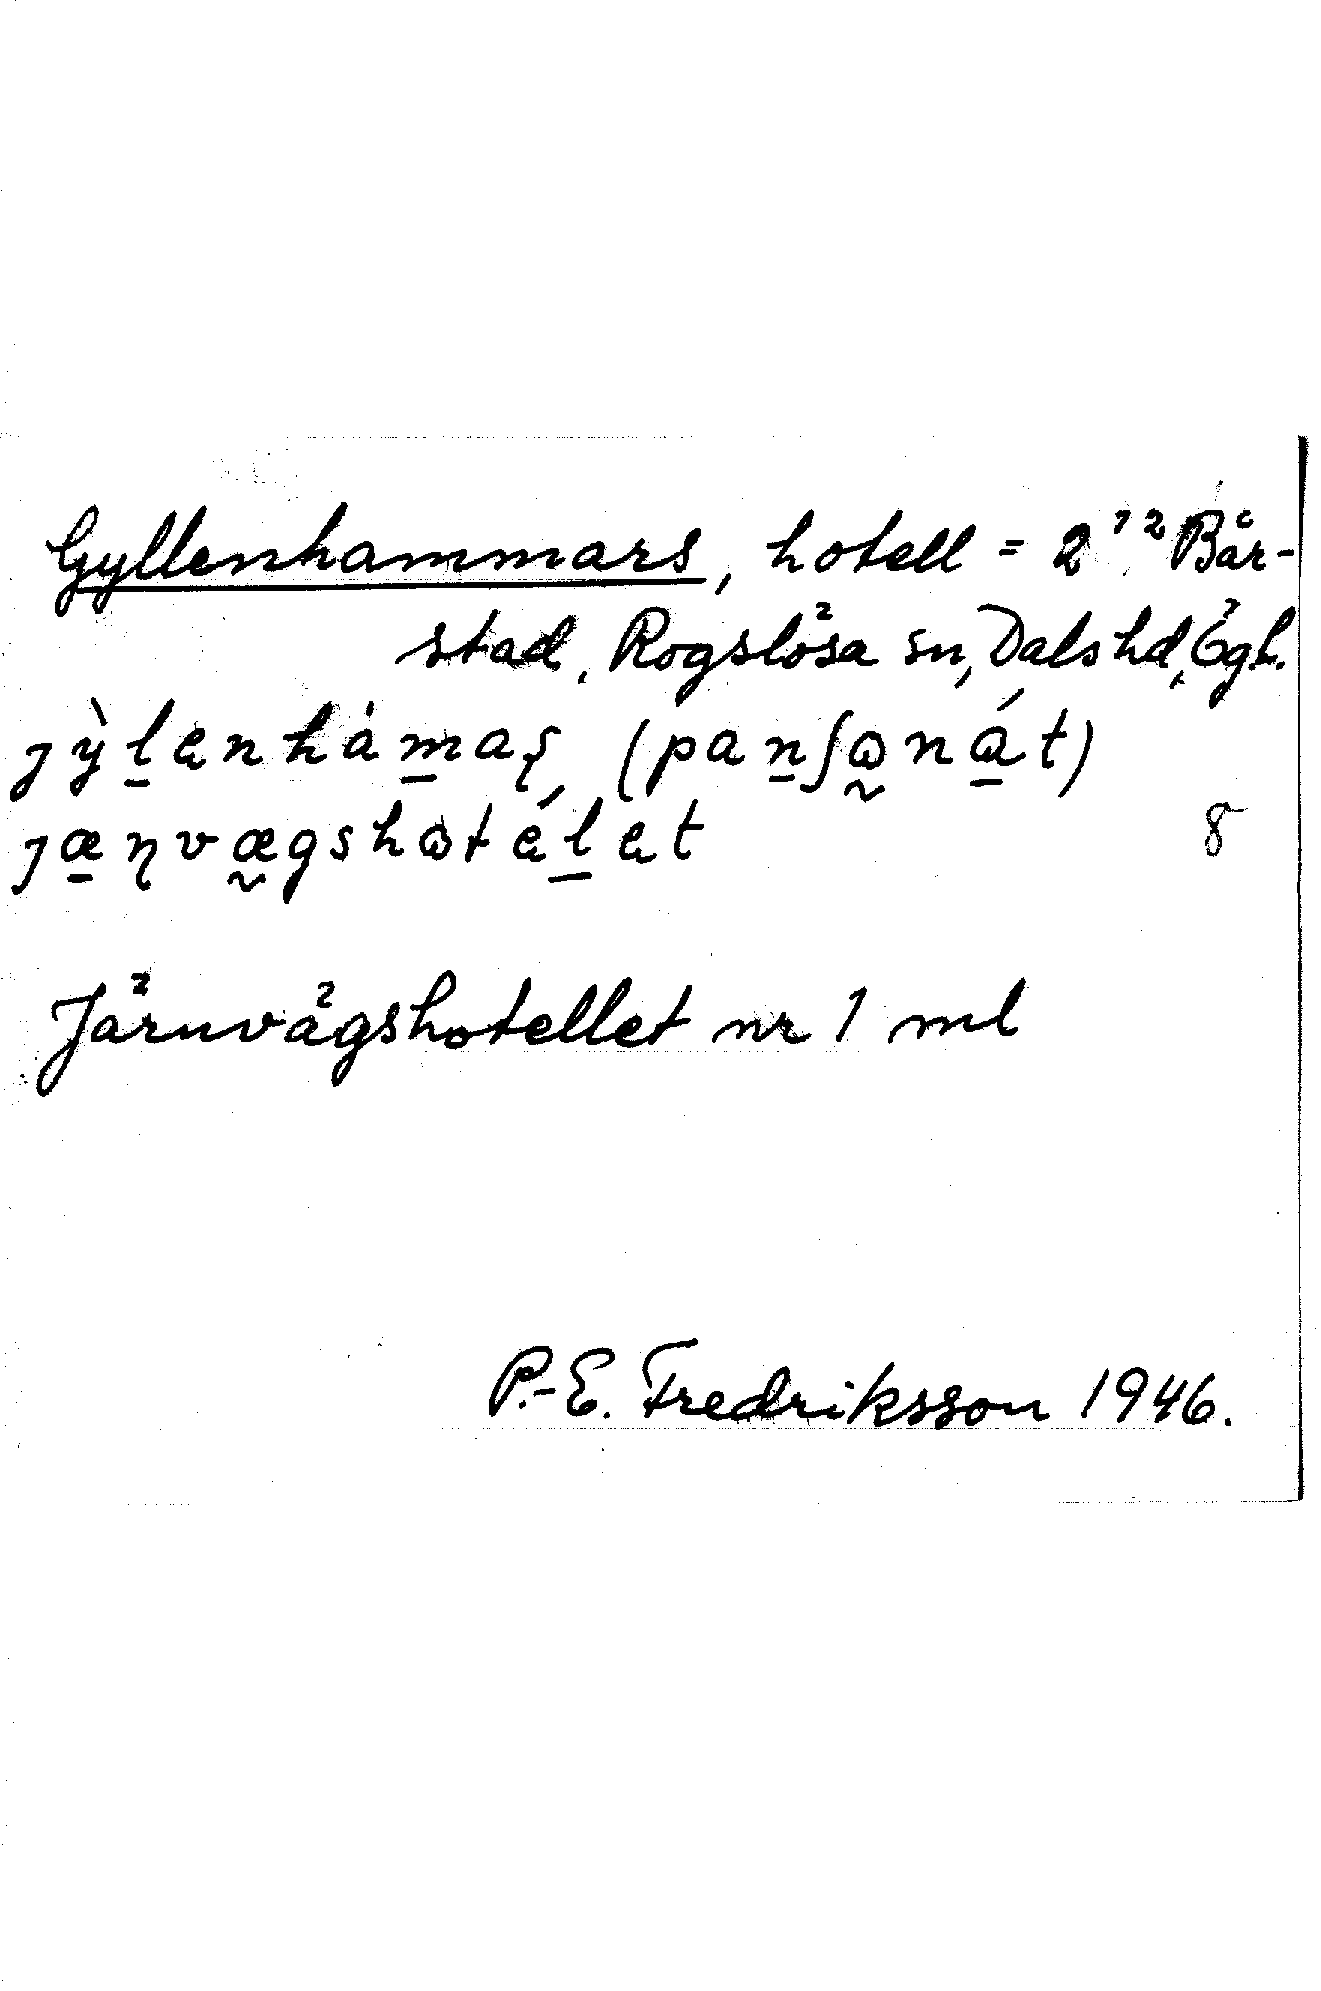 Gyllenhammars, hotell = 2⁷² Bår-
stad, Rogslösa sn, Dals hd, Ögl.
ȷỳl̠enhàm̠aʂ (pan̠ʃɷ̰ná̠t)
ȷæ̠ɳvæ̰gshɷtél̠et
8
Järnvägshotellet nr 1 ml
P.-E. Fredriksson 1946.